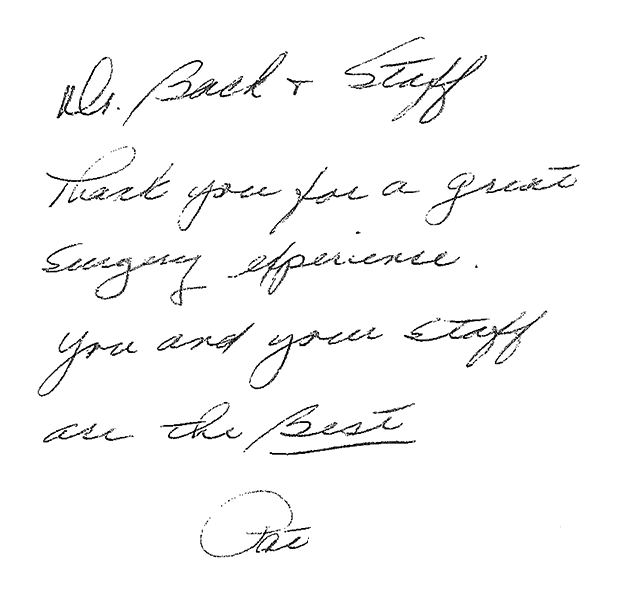 Dr. Bach + Staff
Thank you for a great
Surgery experience.
You and your Staff
are the Best
Pat